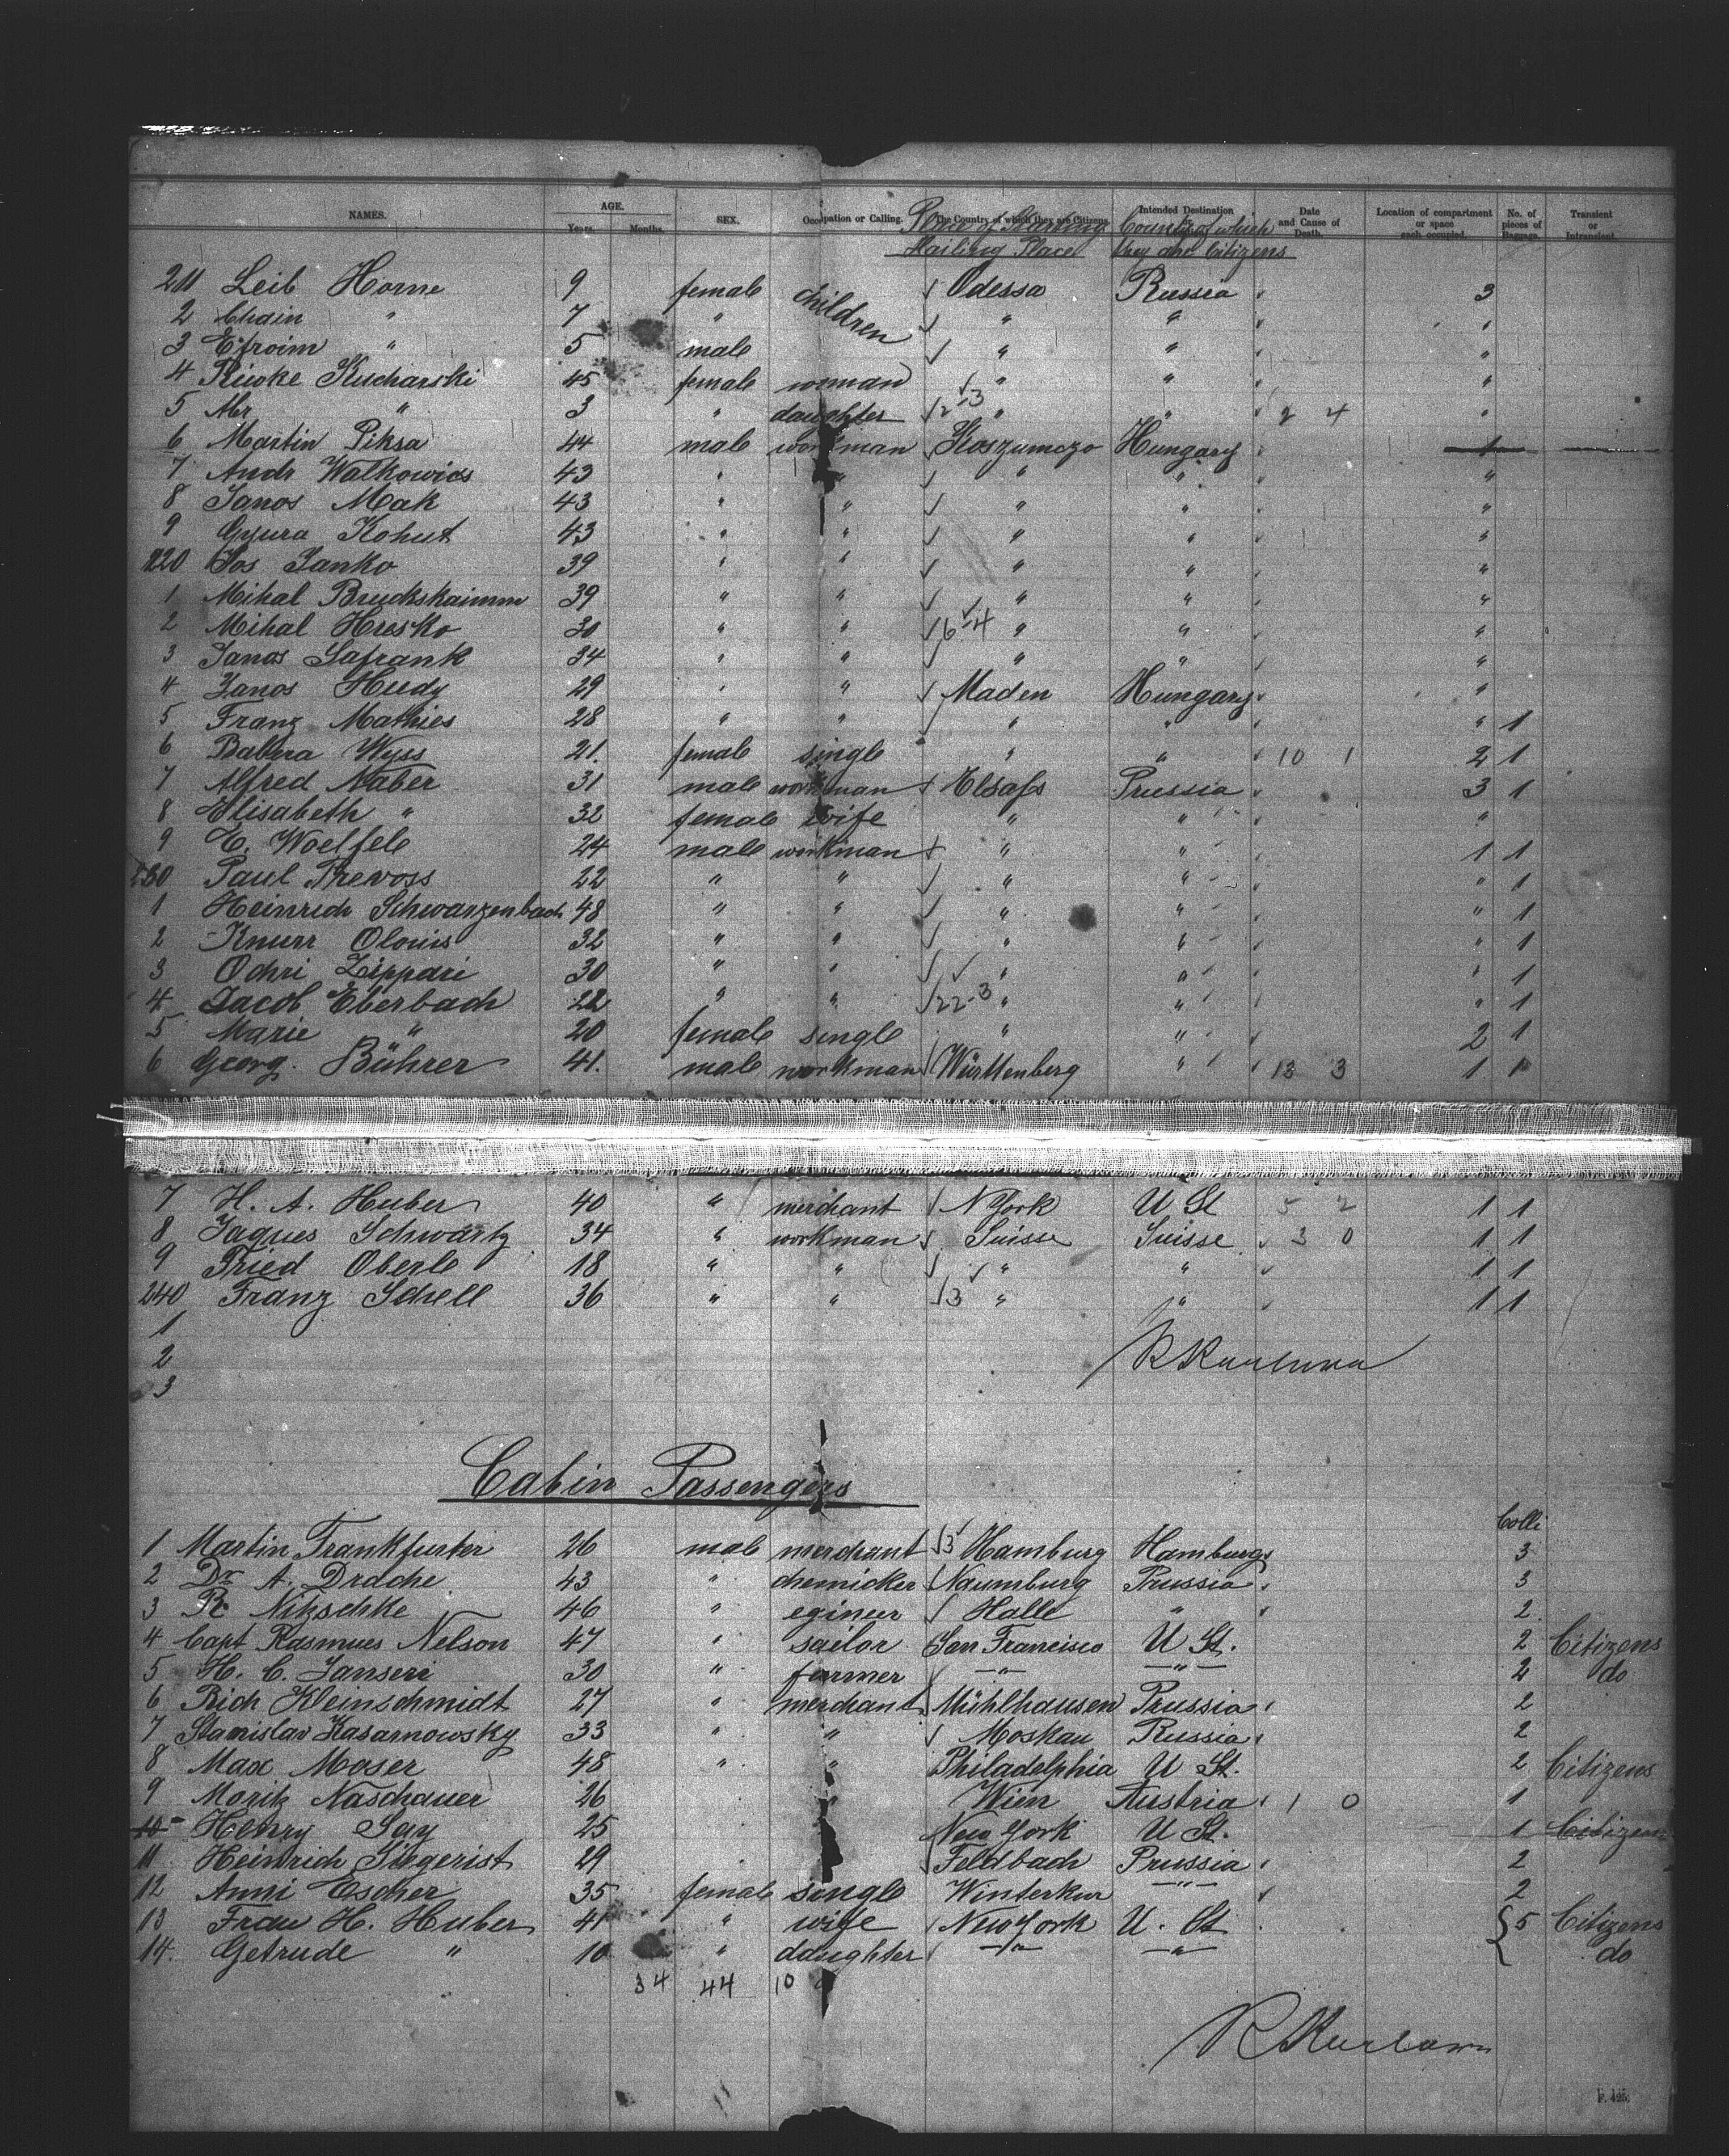 NAMES. AGE. Years. Months. SEX. Occupation or Calling. The Country of which they are Citizens. Intended Destination Date and Cause of Death. Location of compartment or space each occupied. No. of pieces of Baggage. Transient or Intransient.
Place of Starting Country of which
Hailing Place they are Citizens
211 Leib Horne 9 female children Odessa Russia 3
2 Chain " 7 " " " "
3 Efroim " 5 male " " "
4 Riwke Kucharski 45 female woman " " "
5 Abr " 3 " daughter 2-3 " " 2 4 "
6 Martin Piksa 44 male workman Koszumczo Hungary 1
7 Andr Walkowics 43 " " " " "
8 Janos Mak 43 " " " " "
9 Gyura Kohut 43 " " " " "
220 Jos Janko 39 " " " " "
1 Mihal Bruckskaimm 39 " " " " "
2 Mihal Hresko 30 " " 6-4 " " "
3 Janos Safrank 34 " " " " "
4 Janos Hudy 29 " " Maden Hungary "
5 Franz Mathies 28 " " " " " 1
6 Babera Wyss 21. female single " " 10 1 2 1
7 Alfred Naber 31 male workman Elsass Prussia 3 1
8 Elisabeth " 32 female wife " " "
9 E. Woelfele 24 male workman " " 1 1
230 Paul Prevoss 22 " " " " " 1
1 Heinrich Schwarzenbach 48 " " " " " 1
2 Knurr Olouis 32 " " " " " 1
3 Ochri Zippari 30 " " " " " 1
4 Jacob Eberbach 22 " " 22-3 " " " 1
5 Marie " 20 female single " " 2 1
6 Georg. Bührer 41. male workman Württenberg " 13 3 1 1
7 H. A. Huber 40 " merchant N York U St 5 2 1 1
8 Jaques Schwartz 34 " workman Suisse Suisse 3 0 1 1
9 Fried Oberle 18 " " " " 1 1
240 Franz Schell 36 " " 3 " " 1 1
1
2
3
Cabin Passengers
Colli
1 Martin Frankfurter 26 male merchant 3 Hamburg Hamburg 3
2 Dr A. Drache 43 " chemicker Naumburg Prussia 3
3 R. Nitzschke 46 " egineer Halle " 2.
4 Capt Rasmues Nelson 47 " sailor San Francisco U St. 2 Citizens
5 H. C. Jansen 30 " farmer —"— —"— 2 do
6 Rich Kleinschmidt 27 " merchant Mühlhausen Prussia 2
7 Stanislav Kasarnowsky 33 " " Moskau Russia 2
8 Max Moser 48 " " Philadelphia U St. 2 Citizens
9 Moritz Naschauer 26 Wien Austria 1 0 1
10 Henry Say 25 New York U St. 1 Citizens
11 Heinrich Siegerist 29 Feldbach Prussia 2
12 Anni Escher 35 female single Winterkur —"— 2
13 Frau H. Huber 41 " wife New York U. St 5 Citizens
14. Getrude " 10 " daughter —"— —"— do
34 44 10
F. 425.